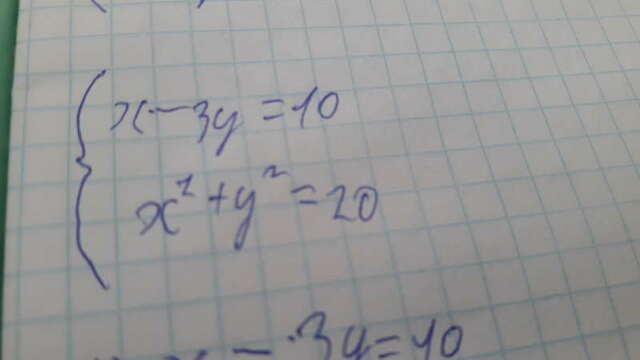 x - 3y = 10
x² + y² = 20
x - 3y = 10